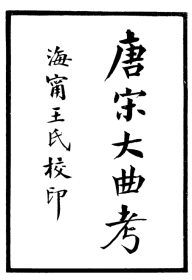 唐宋大曲考
海甯王氏校印